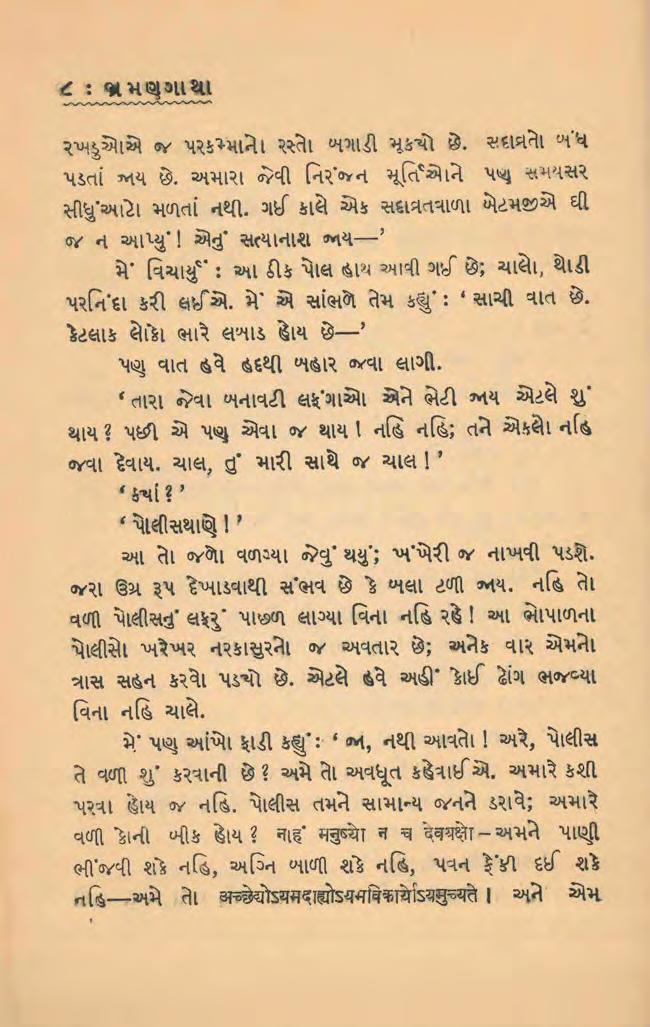 ૮ : ભ્રમણગાથા
રખડુઓએ જ પરકમ્માનો રસ્તો બગાડી મૂક્યો છે. સદાવ્રતો બંધ
પડતાં જાય છે. અમારા જેવી નિરંજન મૂર્તિઓને પણ સમયસર
સીધુંઆટો મળતાં નથી. ગઈ કાલે એક સદાવ્રતવાળા ખેટમજીએ ઘી
જ ન આપ્યું! એનું સત્યાનાશ જાય—’
મેં વિચાર્યું : આ ઠીક પોલ હાથ આવી ગઈ છે; ચાલો, થોડી
પરનિંદા કરી લઈએ. મેં એ સાંભળે તેમ કહ્યું : ‘સાચી વાત છે.
કેટલાક લોકો ભારે લબાડ હોય છે—’
પણ વાત હવે હદથી બહાર જવા લાગી.
‘તારા જેવા બનાવટી લફંગાઓ એને ભેટી જાય એટલે શું
થાય? પછી એ પણ એવા જ થાય! નહિ નહિ; તને એકલો નહિ
જવા દેવાય. ચાલ, તું મારી સાથે જ ચાલ!’
‘ક્યાં?’
‘પોલીસથાણે!’
આ તો જળો વળગ્યા જેવું થયું; ખંખેરી જ નાખવી પડશે.
જરા ઉગ્ર રૂપ દેખાડવાથી સંભવ છે કે બલા ટળી જાય. નહિ તો
વળી પોલીસનું લફરું પાછળ લાગ્યા વિના નહિ રહે! આ ભોપાળના
પોલીસો ખરેખર નરકાસુરનો જ અવતાર છે; અનેક વાર એમનો
ત્રાસ સહન કરવો પડ્યો છે. એટલે હવે અહીં કોઈ ઢોંગ ભજવ્યા
વિના નહિ ચાલે.
મેં પણ આંખો ફાડી કહ્યું : ‘જા, નથી આવતો! અરે, પોલીસ
તે વળી શું કરવાની છે? અમે તો અવધૂત કહેવાઈએ. અમારે કશી
પરવા હોય જ નહિ. પોલીસ તમને સામાન્ય જનને ડરાવે; અમારે
વળી કોની બીક હોય? नाहं मनुष्यो न च देवयक्षो – અમને પાણી
ભીંજવી શકે નહિ, અગ્નિ બાળી શકે નહિ, પવન ફેંકી દઈ શકે
નહિ—અમે તો अच्छेद्योऽयमदाह्योऽयमविकार्योऽयमुच्यते। અને એમ